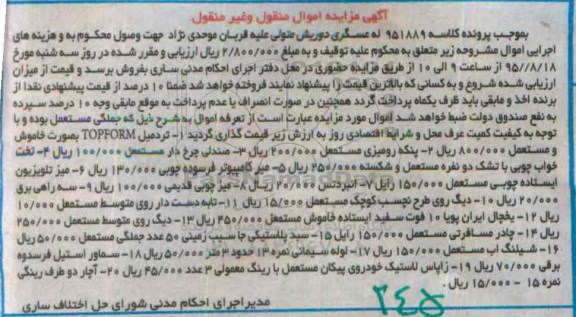 آگهی مزایده اموال منقول وغیر منقول
بموجب پرونده کلاسه ۹۵۱۸۸۹ له عسگری دورریش متولی علیه قربان موحدی نژاد جهت وصول محکوم به و هزینه های
اجرایی اموال مشروحه زیر متعلق به محکوم علیه توقیف و به مبلغ ۲/۸۰۰/۰۰۰ ریال ارزیابی و مقرر شده در روز سه شنبه مورخ
۹۵/۸/۱۸ از ساعت ۹ الی ۱۰ از طریق مزایده حضوری در محل دفتر اجرای احکام مدنی ساری بفروش برسد و قیمت از میزان
ارزیابی شده شروع و به کسانی که بالاترین قیمت را پیشنهاد نمایند فروخته خواهد شد ضمنا ۱۰ درصد از قیمت پیشنهادی نقدا از
برنده اخذ و مابقی باید ظرف یکماه پرداخت گردد همچنین در صورت انصراف یا عدم پرداخت به موقع مابقی وجه ۱۰ درصد سپرده
به نفع صندوق دولت ضبط خواهد شد اموال مورد مزایده عبارت است از تعرفه اموال به شرح ذیل که جملگی مستعمل بوده و با
توجه به کیفیت کمیت عرف محل و شرایط اقتصادی روز به ارزش زیر قیمت گذاری گردید ۱- تردمیل TOPFORM بصورت خاموش
و مستعمل ۸۰۰/۰۰۰ ریال ۲- پنکه رومیزی مستعمل ۲۰۰/۰۰۰ ریال ۳- صندلی چرخ دار مستعمل ۱۰۰/۰۰۰ ریال ۴- تخت
خواب چوبی با تشک دو نفره مستعمل و شکسته ۲۵۰/۰۰۰ ریال ۵- میز کامپیوتر فرسوده چوبی ۱۳۰/۰۰۰ ریال ۶- میز تلویزیون
ایستاده چوبی مستعمل ۱۵۰/۰۰۰ ریال ۷- انبردستی ۲۰/۰۰۰ ریال ۸- میز چوبی قدیمی ۱۰۰/۰۰۰ ریال ۹- سه راهی برق
۲۰/۰۰۰ ریال ۱۰- دیگ روی طرح نچسب کوچک مستعمل ۱۵/۰۰۰ ریال ۱۱- تابه دست دار روی متوسط مستعمل ۱۰/۰۰۰
ریال ۱۲- یخچال ایران پویا ۱۰ فوت سفید ایستاده خاموش مستعمل ۴۵۰/۰۰۰ ریال ۱۳- دیگ روی متوسط مستعمل ۲۵۰/۰۰۰
ریال ۱۴- چادر مسافرتی مستعمل ۱۵۰/۰۰۰ ریال ۱۵- سبد پلاستیکی جا سیب زمینی ۵۰ عدد جملگی مستعمل ۵۰/۰۰۰ ریال
۱۶- شیلنگ آب مستعمل ۱۵۰/۰۰۰ ریال ۱۷- لوله سیمانی نمره ۱۳ حدود ۳ متر ۵۰/۰۰۰ ریال ۱۸- سماور استیل فرسوده
برقی ۷۰/۰۰۰ ریال ۱۹- زاپاس لاستیک خودروی پیکان مستعمل با رینگ معمولی ۳ عدد ۴۵/۰۰۰ ریال ۲۰- آچار دو طرف رینگی
نمره ۱۵ - ۱۵/۰۰۰ ریال .
مدیر اجرای احکام مدنی شورای حل اختلاف ساری
۲۴۵